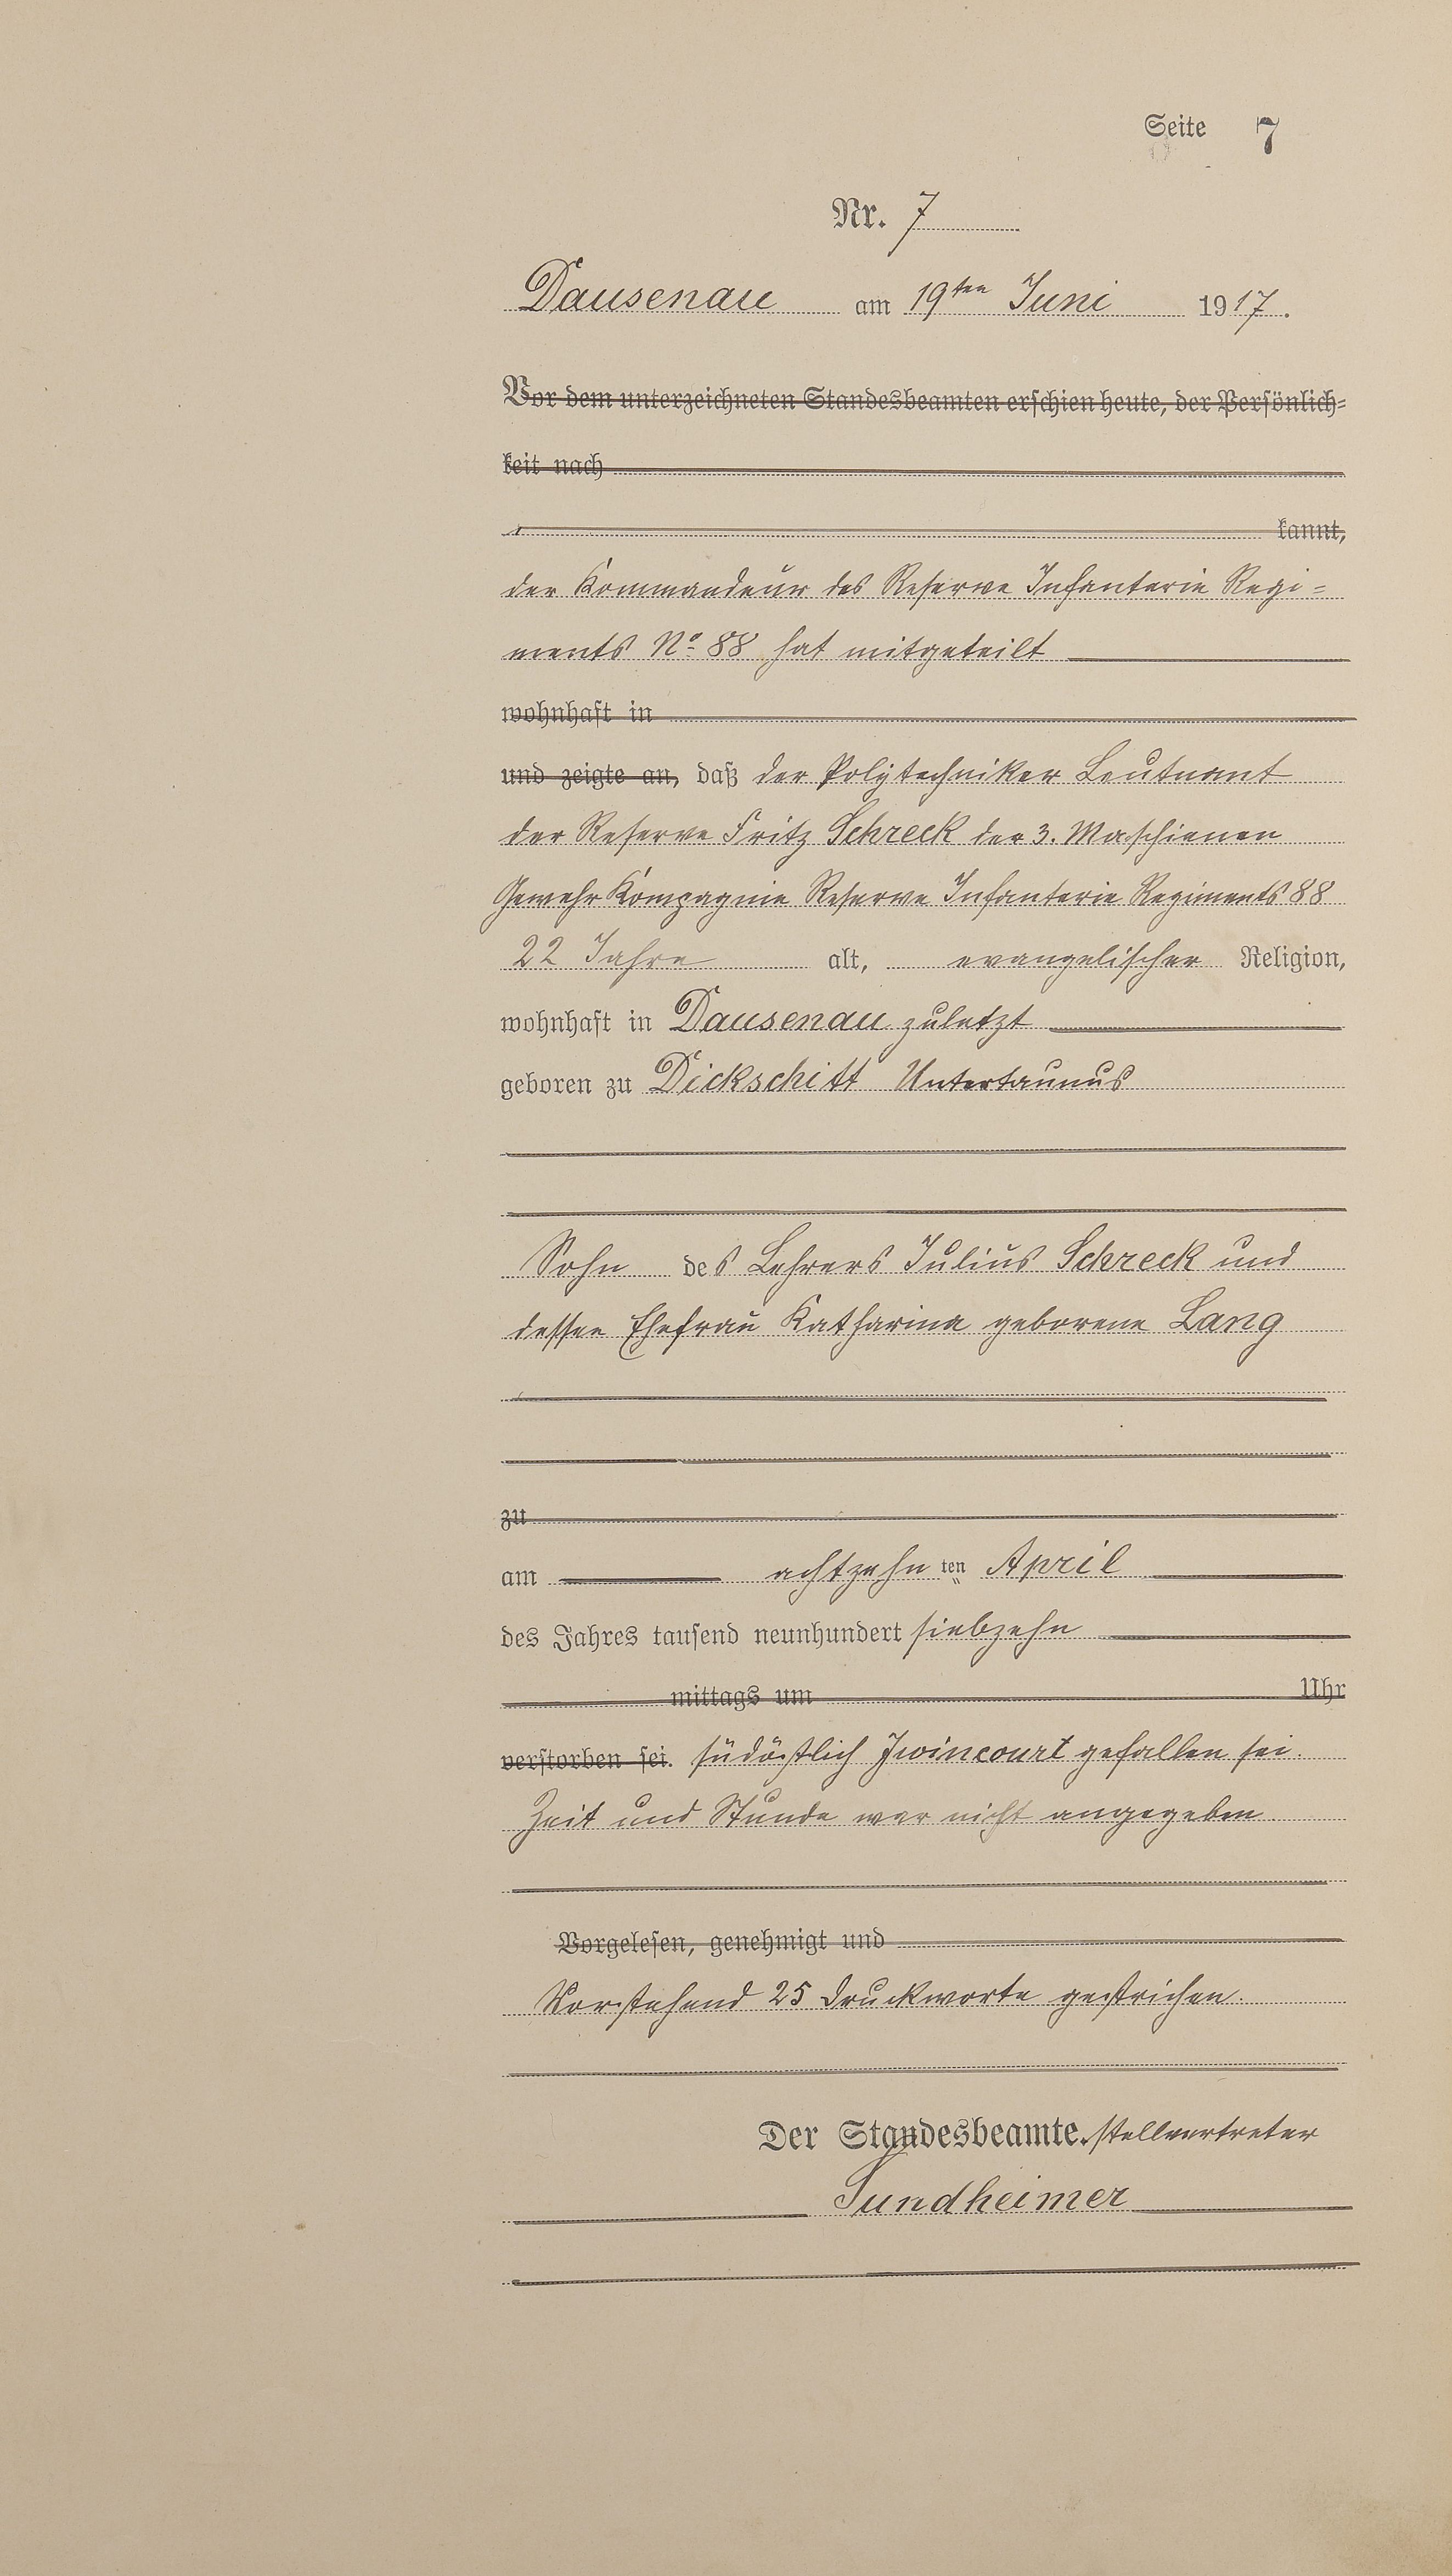 Seite 7
Nr. 7
Dausenau am 19ten Juni 1917.
Vor dem unterzeichneten Standesbeamten erschien heute, der Persönlich=
keit nach
kannt,
der Kommandeur des Reserve Infanterie Regi=
ments No 88 hat mitgeteilt
wohnhaft in
und zeigte an, daß der Polytechniker Leutnant
der Reserve Fritz Schreck der 3. Maschienen
Gewehr Kompagnie Reserve Infanterie Regiments 88
22 Jahre alt, evangelischer Religion,
wohnhaft in Dausenau zuletzt
geboren zu Dickschitt Untertaunus
Sohn des Lehrers Julius Schreck und
dessen Ehefrau Katharina geborene Lang
zu
am achtzehn ten April
des Jahres tausend neunhundert siebzehn
mittags um Uhr
verstorben sei. südöstlich Juvincourt gefallen sei.
Zeit und Stunde war nicht angegeben
Vorgelesen, genehmigt und
Vorstehend 25 Druckworte gestrichen.
Der Standesbeamte. stellvertreter
Sundheimer